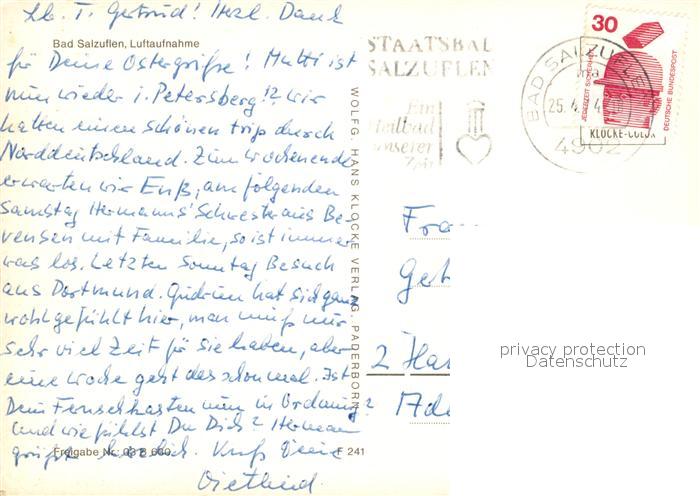 Lb. T. Gertrud! Herzl. Dank
Bad Salzuflen, Luftaufnahme
für Deine Ostergrüße! Mutti ist
nun wieder i. Petersberg! Wir
hatten einen schönen trip durch
Norddeutschland. Zum Wochenende
erwarten wir Euß, am folgenden
Samstag Hermanns' Schwester aus Be-
vensen mit Familie, so ist immer
was los. Letzten Sonntag Besuch
aus Dortmund. Gudrun hat sich ganz
wohlgefühlt hier, man muß nur
sehr viel Zeit für sie haben, aber
eine Woche geht das schon mal. Ist
Dein Fernsehkasten nun in Ordnung?
Und wie fühlst Du Dich? Herman
grüßt herzlich. Kuß Deine
Dietlind.
Freigabe Nr. 03 B 600
F 241
WOLFG. HANS KLOCKE VERLAG, PADERBORN
STAATSBAD
SALZUFLEN
Ein
Heilbad
unserer
Zeit
BAD SALZUFLEN
25.4.
4902
30
JEDERZEIT SICHERHEIT
DEUTSCHE BUNDESPOST
KLOCKE-COLOR
Fra
Gert
2 Ha
Ade
privacy protection
Datenschutz